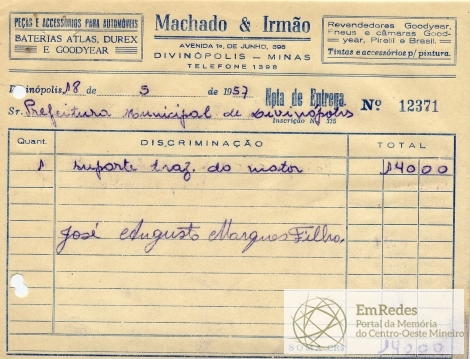 PEÇAS E ACCESSÓRIOS PARA AUTOMÓVEIS
BATERIAS ATLAS, DUREX
E GOODYEAR
Machado & Irmão
AVENIDA 1º, DE JUNHO, 396
DIVINÓPOLIS — MINAS
TELEFONE 1398
Revendedores Goodyear,
Pneus e câmaras Good-
year, Pirelli e Brasil.
Tintas e accessórios p/ pintura.
Divinópolis, 18 de 5 de 1957
Nota de Entrega.
Nº 12371
Sr. Prefeitura Municipal de Divinópolis
Inscrição Nº 315
Quant. DISCRIMINAÇÃO TOTAL
1 suporte traz. do motor 140 00
José Augusto Marques Filho.
EmRedes
Portal da Memória
do Centro-Oeste Mineiro
SOMA CR$ 140 00